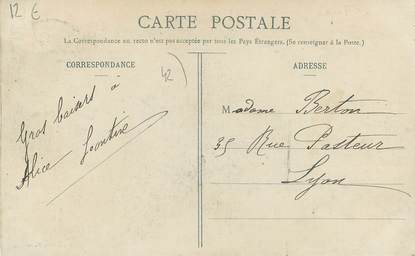 12 €
CARTE POSTALE
La Correspondance au recto n'est pas acceptée par tous les Pays Étrangers. (Se renseigner à la Poste.)
CORRESPONDANCE
42
Gros baisers à
Alice Leontine
ADRESSE
Madame Berton
35 Rue Pasteur
Lyon